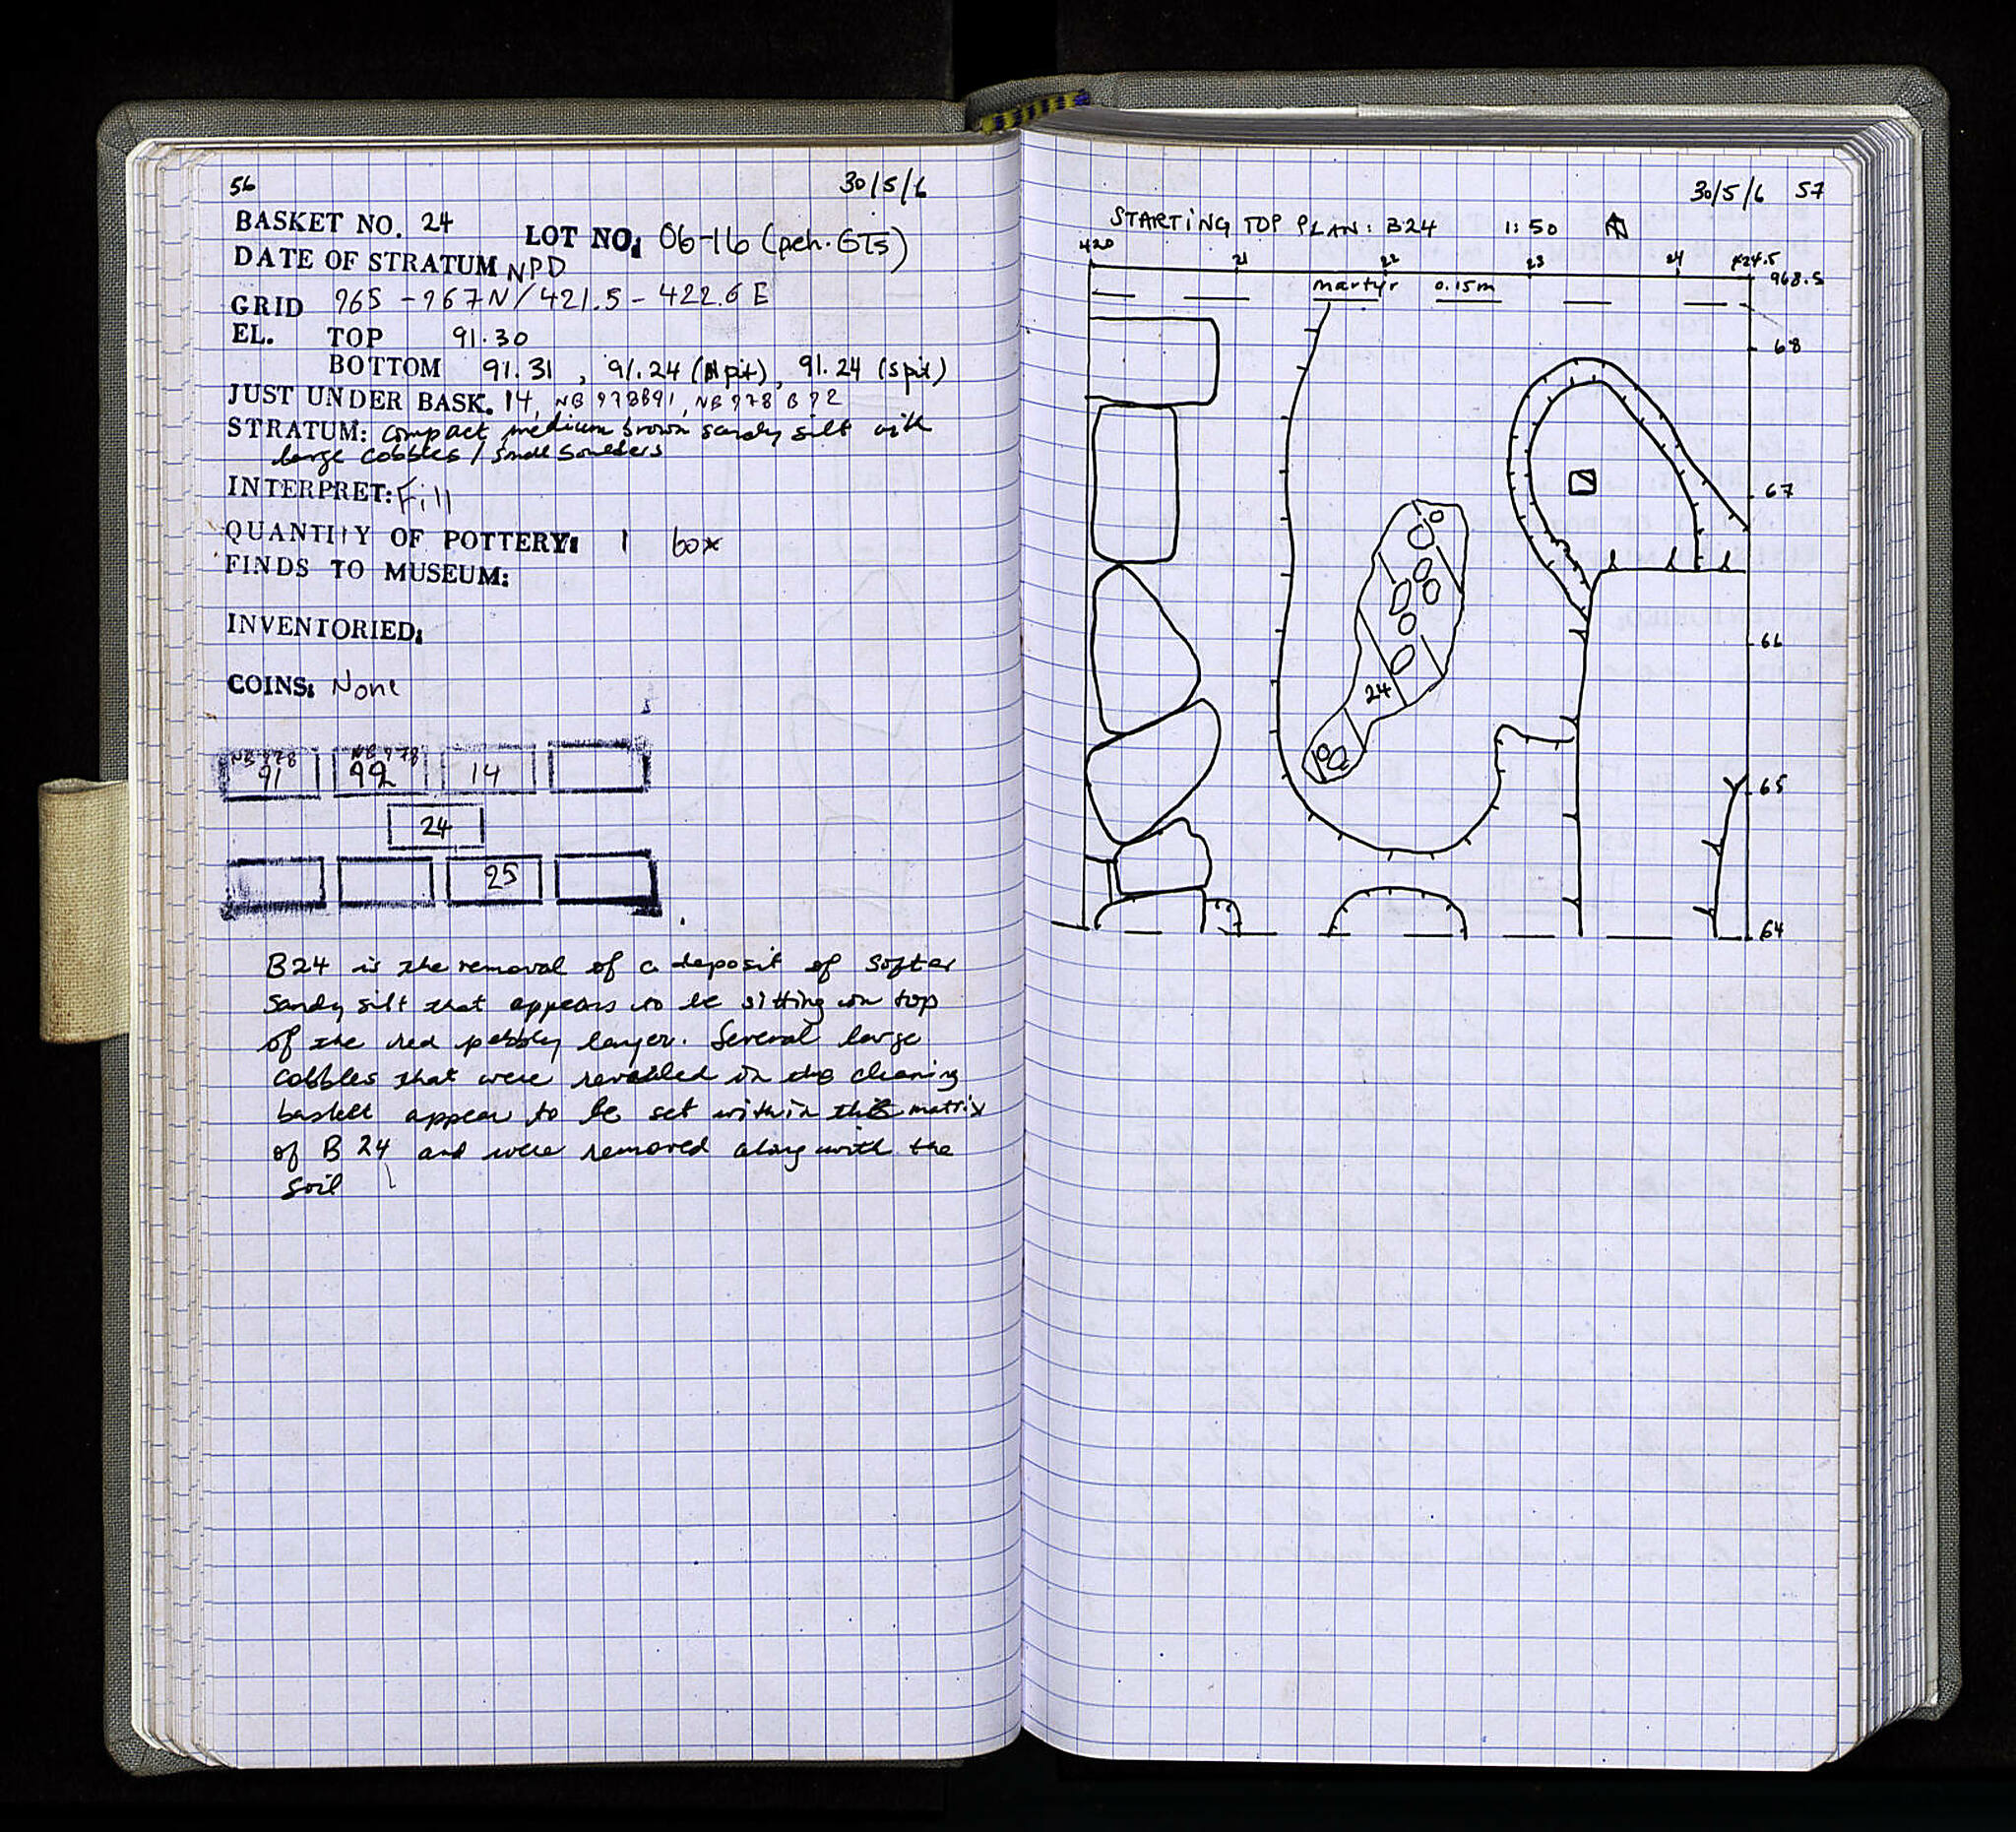 56
30/5/6
BASKET NO. 24
LOT NO: 06-16 (peh. GTs)
DATE OF STRATUM NPD
GRID 965 - 967N / 421.5 - 422.6 E
EL. TOP 91.30
BOTTOM 91.31 , 91.24 (N pit), 91.24 (S pit)
JUST UNDER BASK. 14, NB 978 B91, NB 978 B 92
STRATUM: compact medium brown sandy silt with
large cobbles / small boulders
INTERPRET: Fill
QUANTITY OF POTTERY: 1 box
FINDS TO MUSEUM:
INVENTORIED:
COINS: None
NB 978 NB 978
91 92 14
24
25
B24 is the removal of a deposit of softer
sandy silt that appears to be sitting on top
of the red pebbly layer. Several large
cobbles that were revealed in the cleaning
basket appear to be set within the matrix
of B 24 and were removed along with the
soil
30/5/6 57
STARTING TOP PLAN: B24 1:50
420 21 22 23 24 424.5
968.5
martyr 0.15m
68
67
66
24
65
64